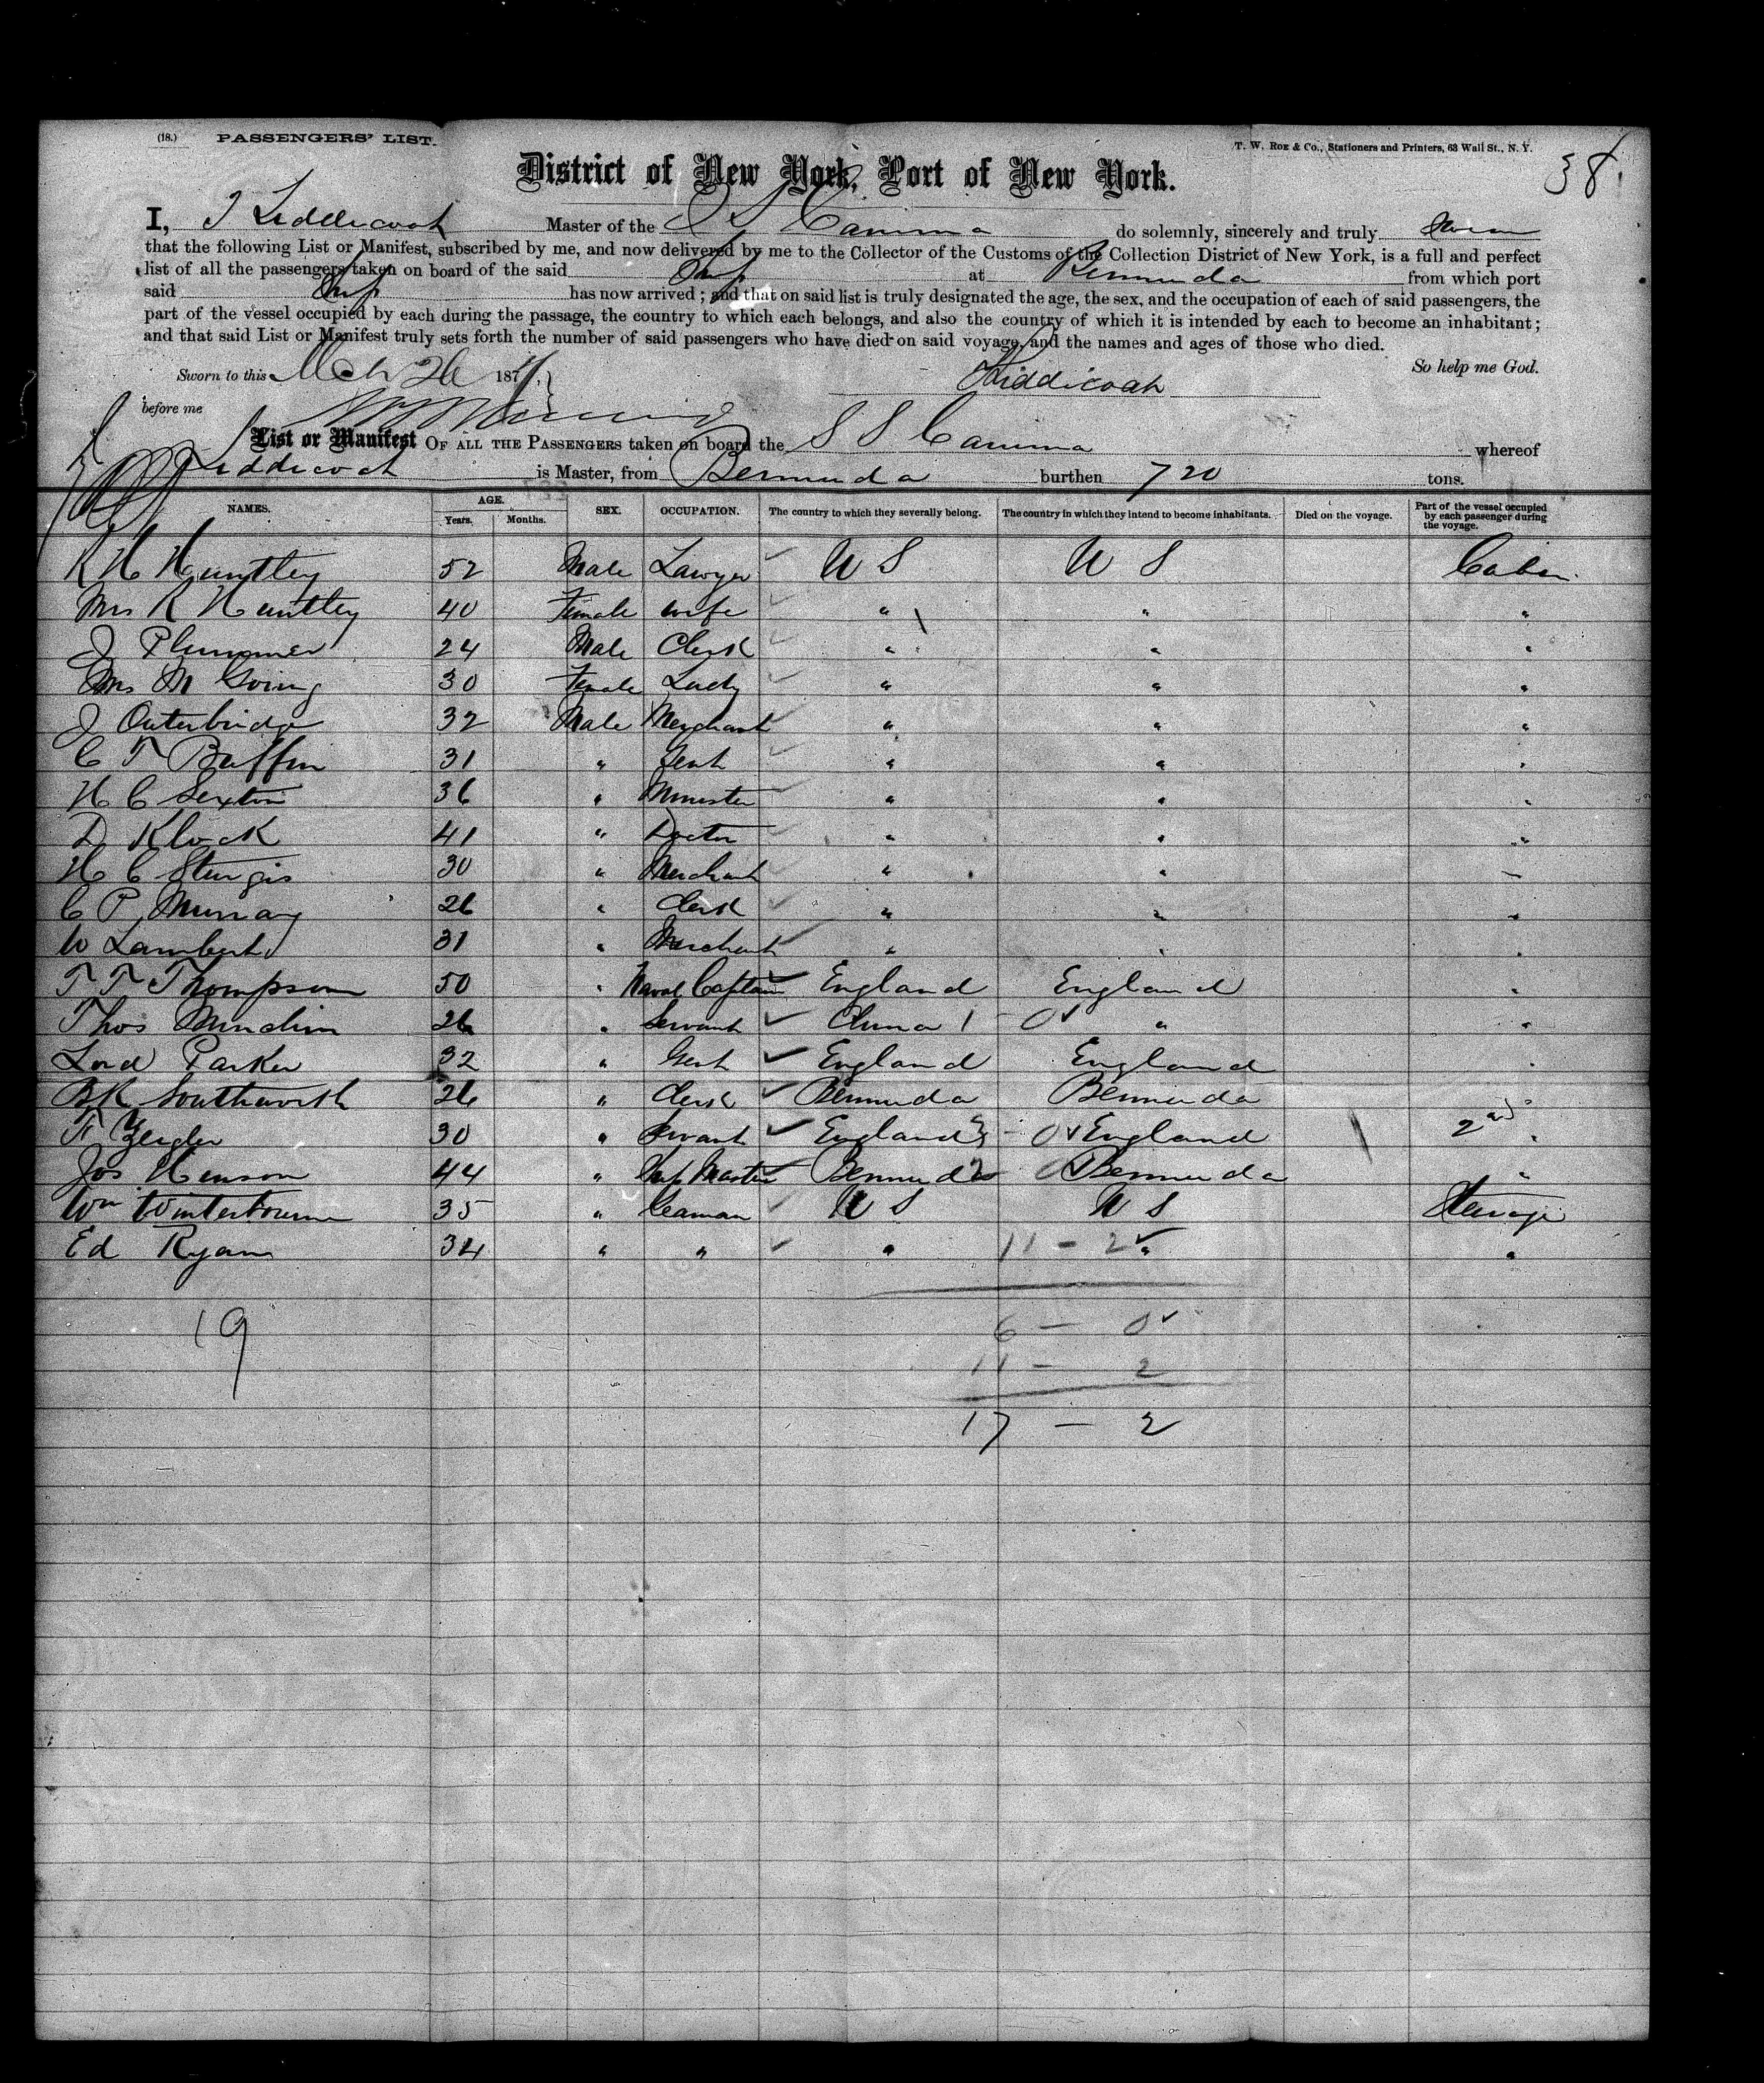 (18.) PASSENGERS' LIST. T. W. Roe & Co., Stationers and Printers, 63 Wall St., N. Y. 38
District of New York, Port of New York.
I, Liddicoat Master of the S S Canima do solemnly, sincerely and truly Swear
that the following List or Manifest, subscribed by me, and now delivered by me to the Collector of the Customs of the Collection District of New York, is a full and perfect
list of all the passengers taken on board of the said Ship at Bermuda from which port
said Ship has now arrived; and that on said list is truly designated the age, the sex, and the occupation of each of said passengers, the
part of the vessel occupied by each during the passage, the country to which each belongs, and also the country of which it is intended by each to become an inhabitant;
and that said List or Manifest truly sets forth the number of said passengers who have died on said voyage, and the names and ages of those who died.
So help me God.
Sworn to this Mch 26 187 Liddicoat
before me
List or Manifest OF ALL THE PASSENGERS taken on board the S S Canima whereof
Liddicoat is Master, from Bermuda burthen 720 tons.
NAMES. AGE. Years. Months. SEX. OCCUPATION. The country to which they severally belong. The country in which they intend to become inhabitants. Died on the voyage. Part of the vessel occupied by each passenger during the voyage.
R H Huntley 52 Male Lawyer U S U S Cabin
Mrs R Huntley 40 Female wife " " "
J Plummer 24 Male Clerk " " "
Mrs M Going 30 Female Lady " " "
J Outerbridge 32 Male Merchant " " "
C T Buffin 31 " Gent " " "
H C Sexton 36 " Minister " " "
D Klock 41 " Doctor " " "
H C Sturgis 30 " Merchant " " "
C P Murray 26 " Clerk " " "
W Lambert 31 " Merchant " " "
T T Thompson 50 " Naval Captain England England "
Thos 26 " Servant China 1 - 0 " "
Lord Parker 32 " Gent England England "
BK Southworth 26 " Clerk Bermuda Bermuda "
F Zeigler 30 " Servant England 3 - 0 England 2nd "
Jos Henson 44 " Ship Master Bermuda 2 0 Bermuda "
Wm Winterbourne 35 " Seaman U S U S Steerage
Ed Ryan 34 " " " 11 - 2 " "
19
6 - 0
11 - 2
17 - 2